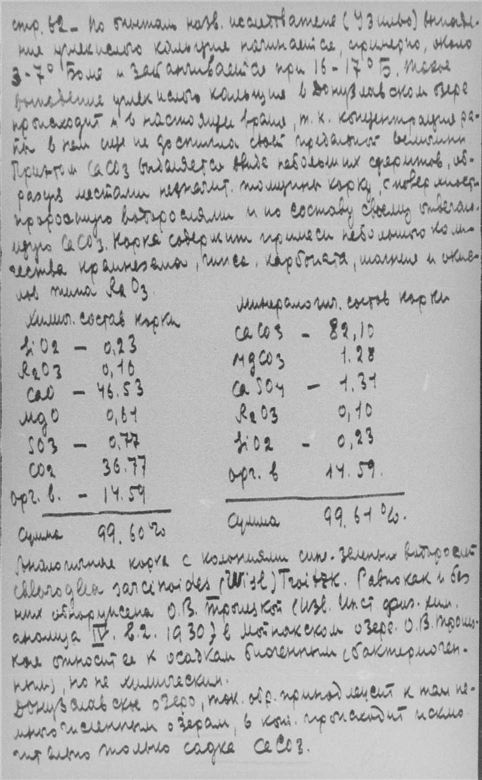 стр. 62 – По опытам назв. исследователя (Узильо) выпаде-
ние углекислого кальция начинается, примерно, около
3-7° Боме и заканчивается при 16-17° Б. Такое
выпадение углекислого кальция в Донузлавском озере
происходит и в настоящее время, т.к. концентрация ра-
пы в нем еще не достигла своей предельной величины
При этом CaCO3 выделяется в виде небольших сферитов, об-
разуя местами незначит. толщины корку, с поверхности
проросшую водорослями и по составу своему отвечаю-
щую CaCO3. Корка содержит примеси небольшого коли-
чества кремнезема, гипса, карбоната, магния и окис-
лов типа R2O3.
Химич. состав корки
SiO2 – 0,23
R2O3 0,10
CaO – 46.53
MgO 0,61
SO3 – 0,77
CO2 36.77
орг. в. – 14.59
Сумма 99.60%
минералогич. состав корки
CaCO3 – 82,10
MgCO3 1.28
CaSO4 – 1.31
R2O3 0,10
SiO2 – 0,23
орг. в 14.59.
Сумма 99.61%.
Аналогичная корка с колониями сине-зеленых водорослей
Chlorogloea sarcinoides (Wisl) Troitzk. Равно как и без
них обнаружена О.В. Троицкой (Изв. Инст физ. хим.
анализа IV. в.2. 1930) в Мойнакском озере. О.В. Троиц-
кая относит ее к осадкам биогенным (бактериоген-
ным), но не химическим.
Донузлавское озеро, так. обр. принадлежит к тем не-
многочисленным озерам, в кот. происходит исклю-
чительно только садка CaCO3.